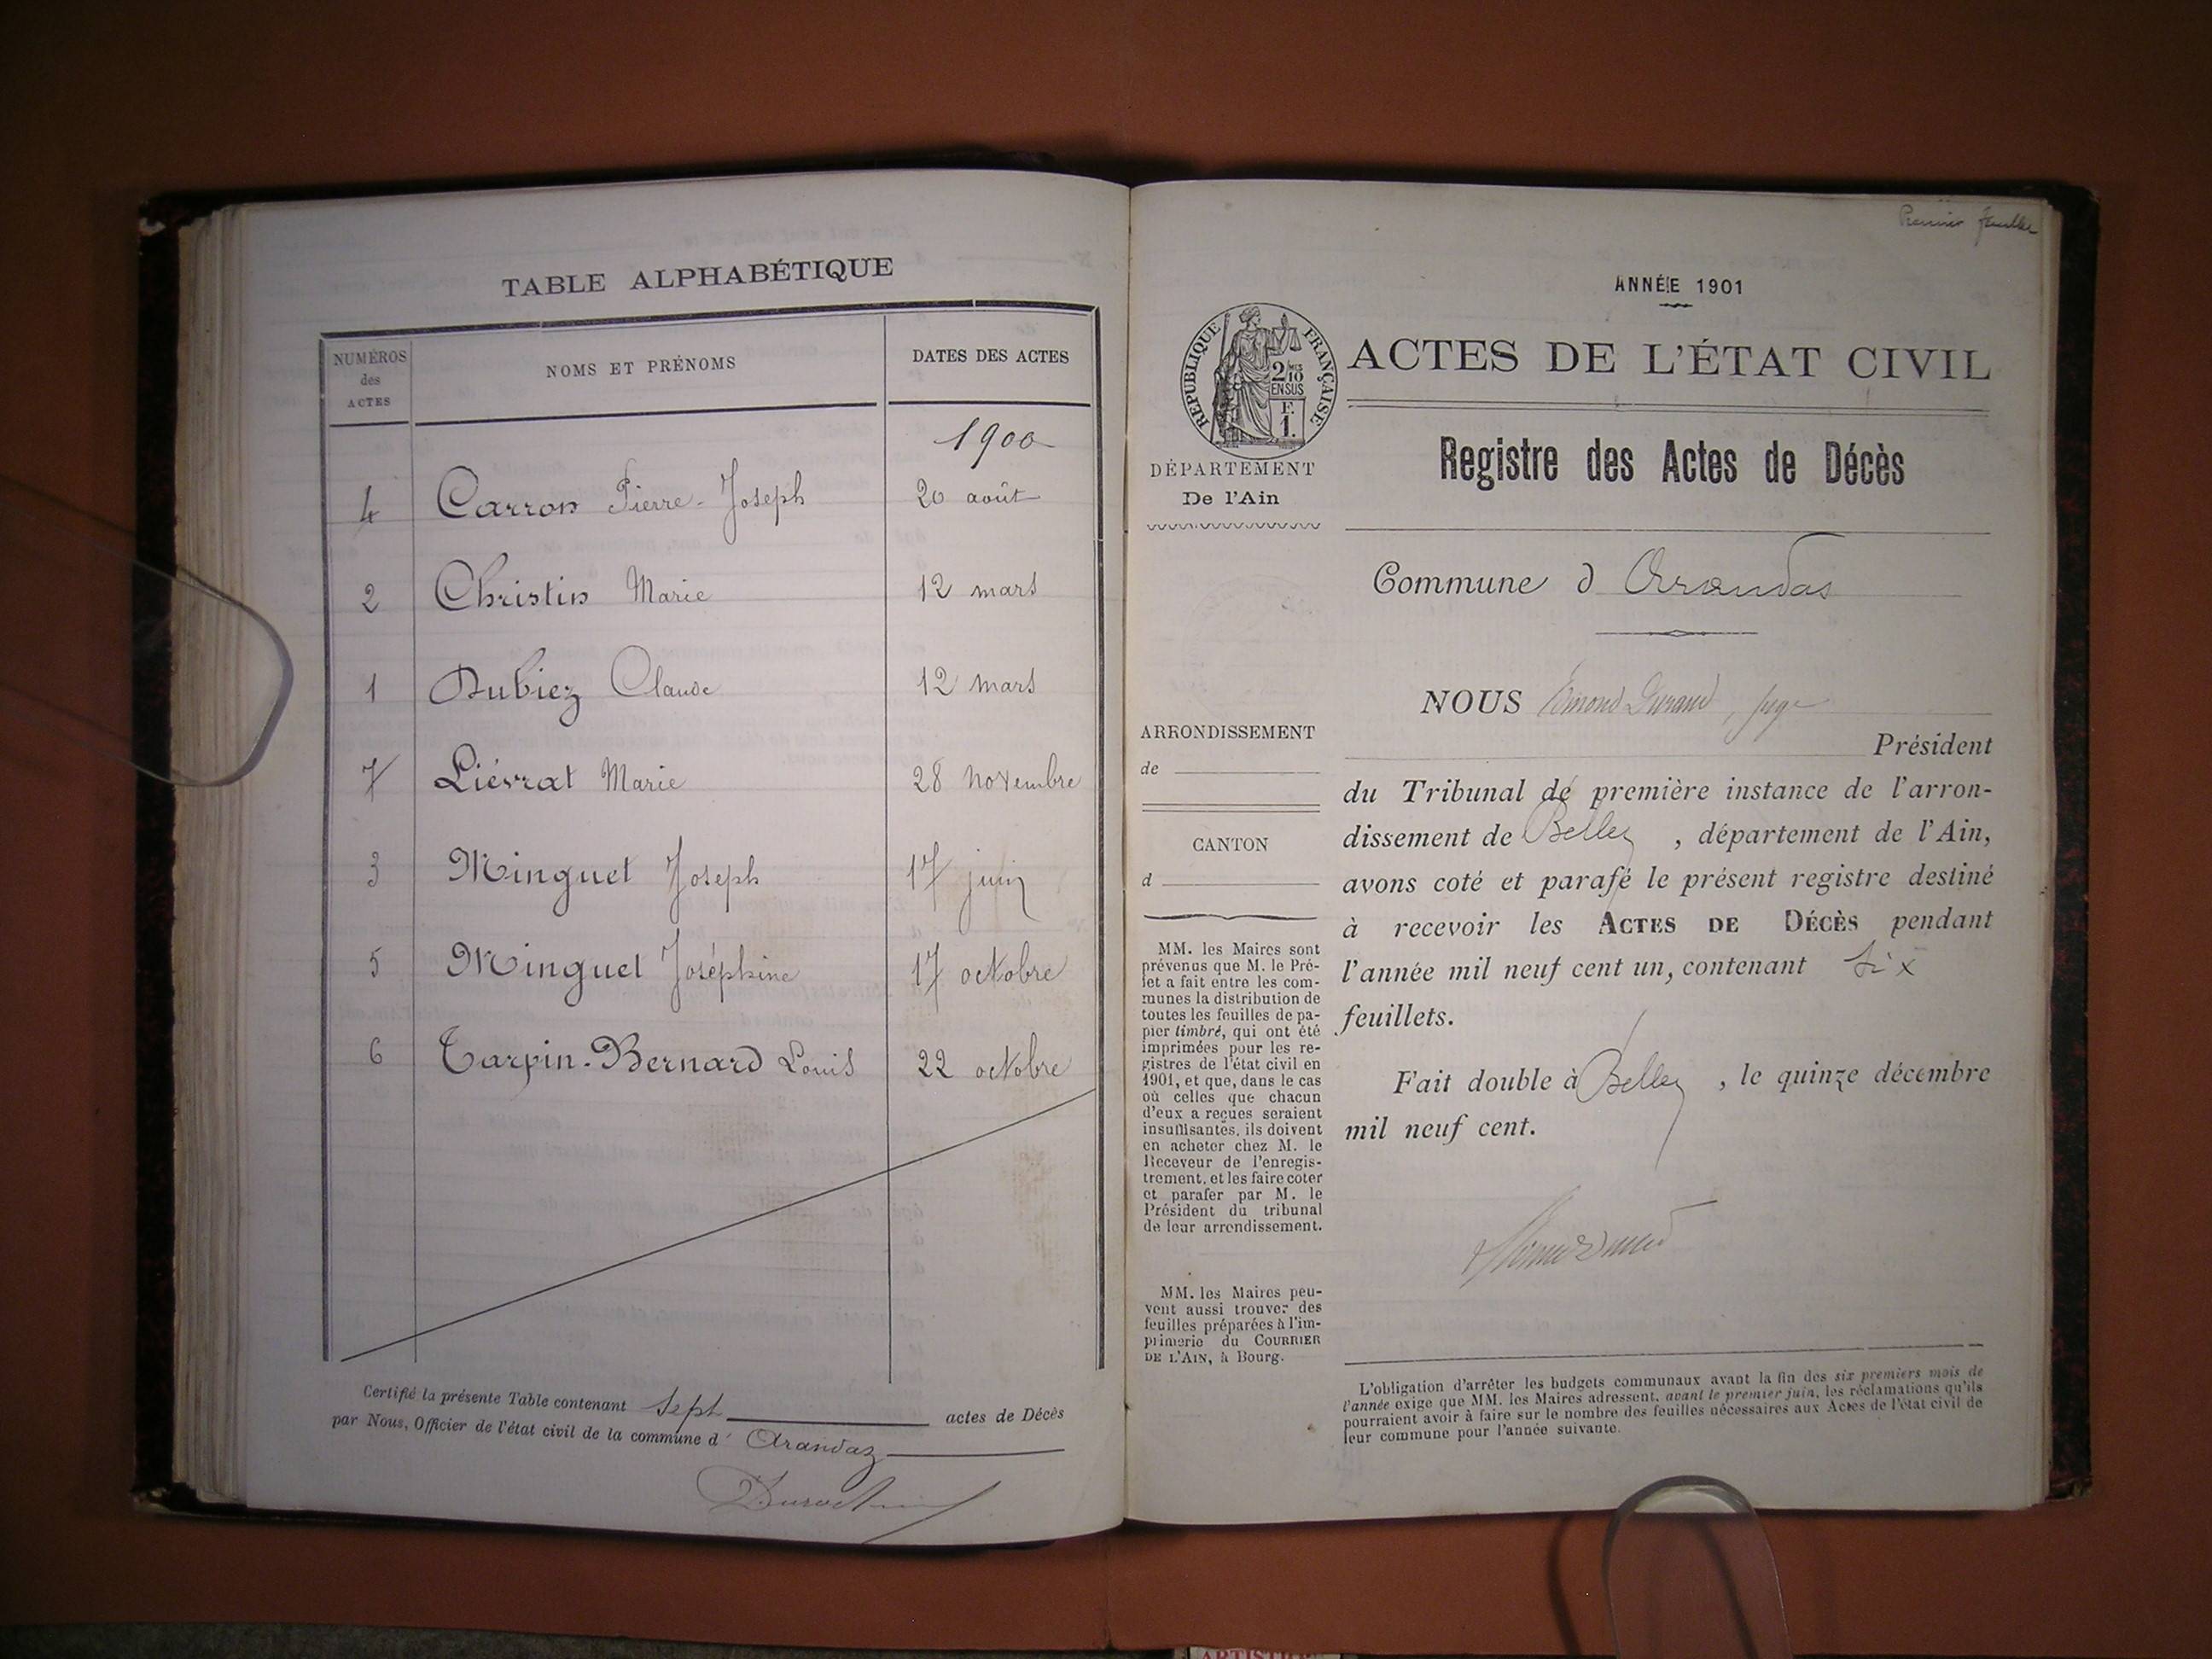 TABLE ALPHABÉTIQUE
NUMÉROS des ACTES
NOMS ET PRÉNOMS
DATES DES ACTES
1900
4 Carron Pierre-Joseph 20 août
2 Christin Marie 12 mars
1 Dubiez Claude 12 mars
7 Liévrat Marie 28 novembre
3 Minguet Joseph 17 juin
5 Minguet Joséphine 17 octobre
6 Tarpin-Bernard Louis 22 octobre
Certifié la présente Table contenant Sept actes de Décès
par Nous, Officier de l'état civil de la commune d' Arandaz
Premier feuillet
ANNÉE 1901
RÉPUBLIQUE FRANÇAISE
2/10
EN SUS
F.
1.
ACTES DE L'ÉTAT CIVIL
DÉPARTEMENT
De l'Ain
Registre des Actes de Décès
Commune d Arandas
NOUS Edmond Durand, juge
Président
du Tribunal de première instance de l'arron-
dissement de Belley, département de l'Ain,
avons coté et parafé le présent registre destiné
à recevoir les ACTES DE DÉCÈS pendant
l'année mil neuf cent un, contenant six
feuillets.
Fait double à Belley, le quinze décembre
mil neuf cent.
ARRONDISSEMENT
de
CANTON
d
MM. les Maires sont
prévenus que M. le Pré-
fet a fait entre les com-
munes la distribution de
toutes les feuilles de pa-
pier timbré, qui ont été
imprimées pour les re-
gistres de l'état civil en
1901, et que, dans le cas
où celles que chacun
d'eux a reçues seraient
insuffisantes, ils doivent
en acheter chez M. le
Receveur de l'enregis-
trement, et les faire coter
et parafer par M. le
Président du tribunal
de leur arrondissement.
MM. les Maires peu-
vent aussi trouver des
feuilles préparées à l'im-
primerie du COURRIER
DE L'AIN, à Bourg.
L'obligation d'arrêter les budgets communaux avant la fin des six premiers mois de
l'année exige que MM. les Maires adressent, avant le premier juin, les réclamations qu'ils
pourraient avoir à faire sur le nombre des feuilles nécessaires aux Actes de l'état civil de
leur commune pour l'année suivante.